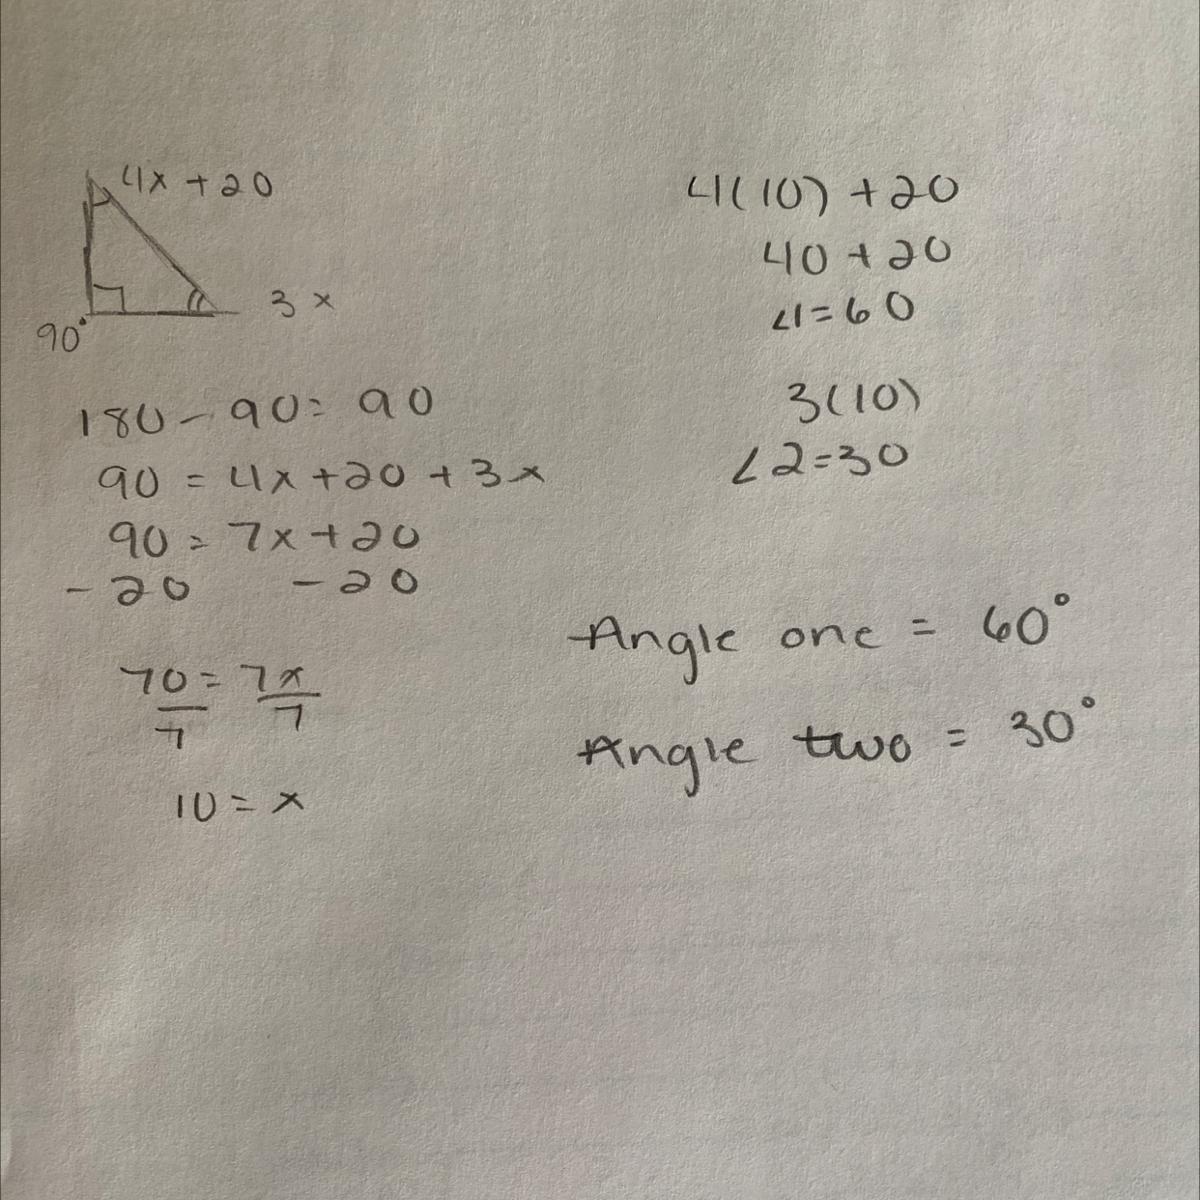 4x + 20
3 x
90°
180 - 90 = 90
90 = 4x + 20 + 3x
90 = 7x + 20
- 20 - 20
70 = 7x
7 7
10 = x
4(10) + 20
40 + 20
∠1 = 60
3(10)
∠2 = 30
Angle one = 60°
Angle two = 30°